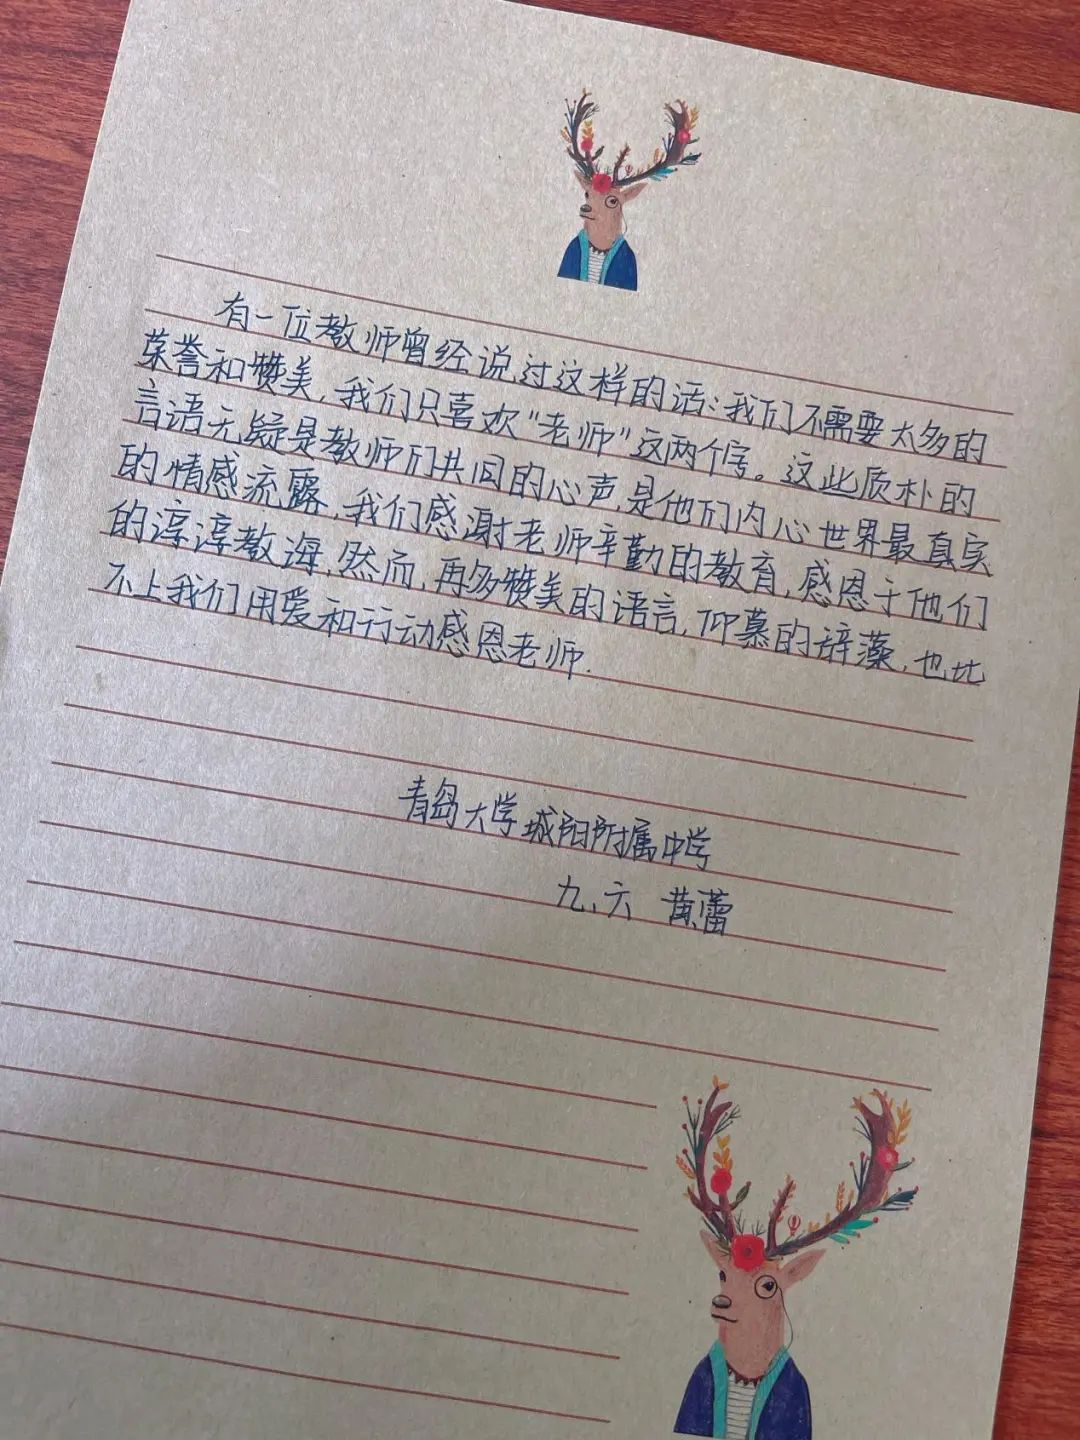 有一位教师曾经说过这样的话：我们不需要太多的
荣誉和赞美，我们只喜欢“老师”这两个字。这些质朴的
言语无疑是教师们共同的心声，是他们内心世界最真实
的情感流露，我们感谢老师辛勤的教育，感恩于他们
的淳淳教海，然而，再多赞美的语言，仰慕的辞藻，也比
不上我们用爱和行动感恩老师.
青岛大学城阳附属中学
九、六 黄蕾